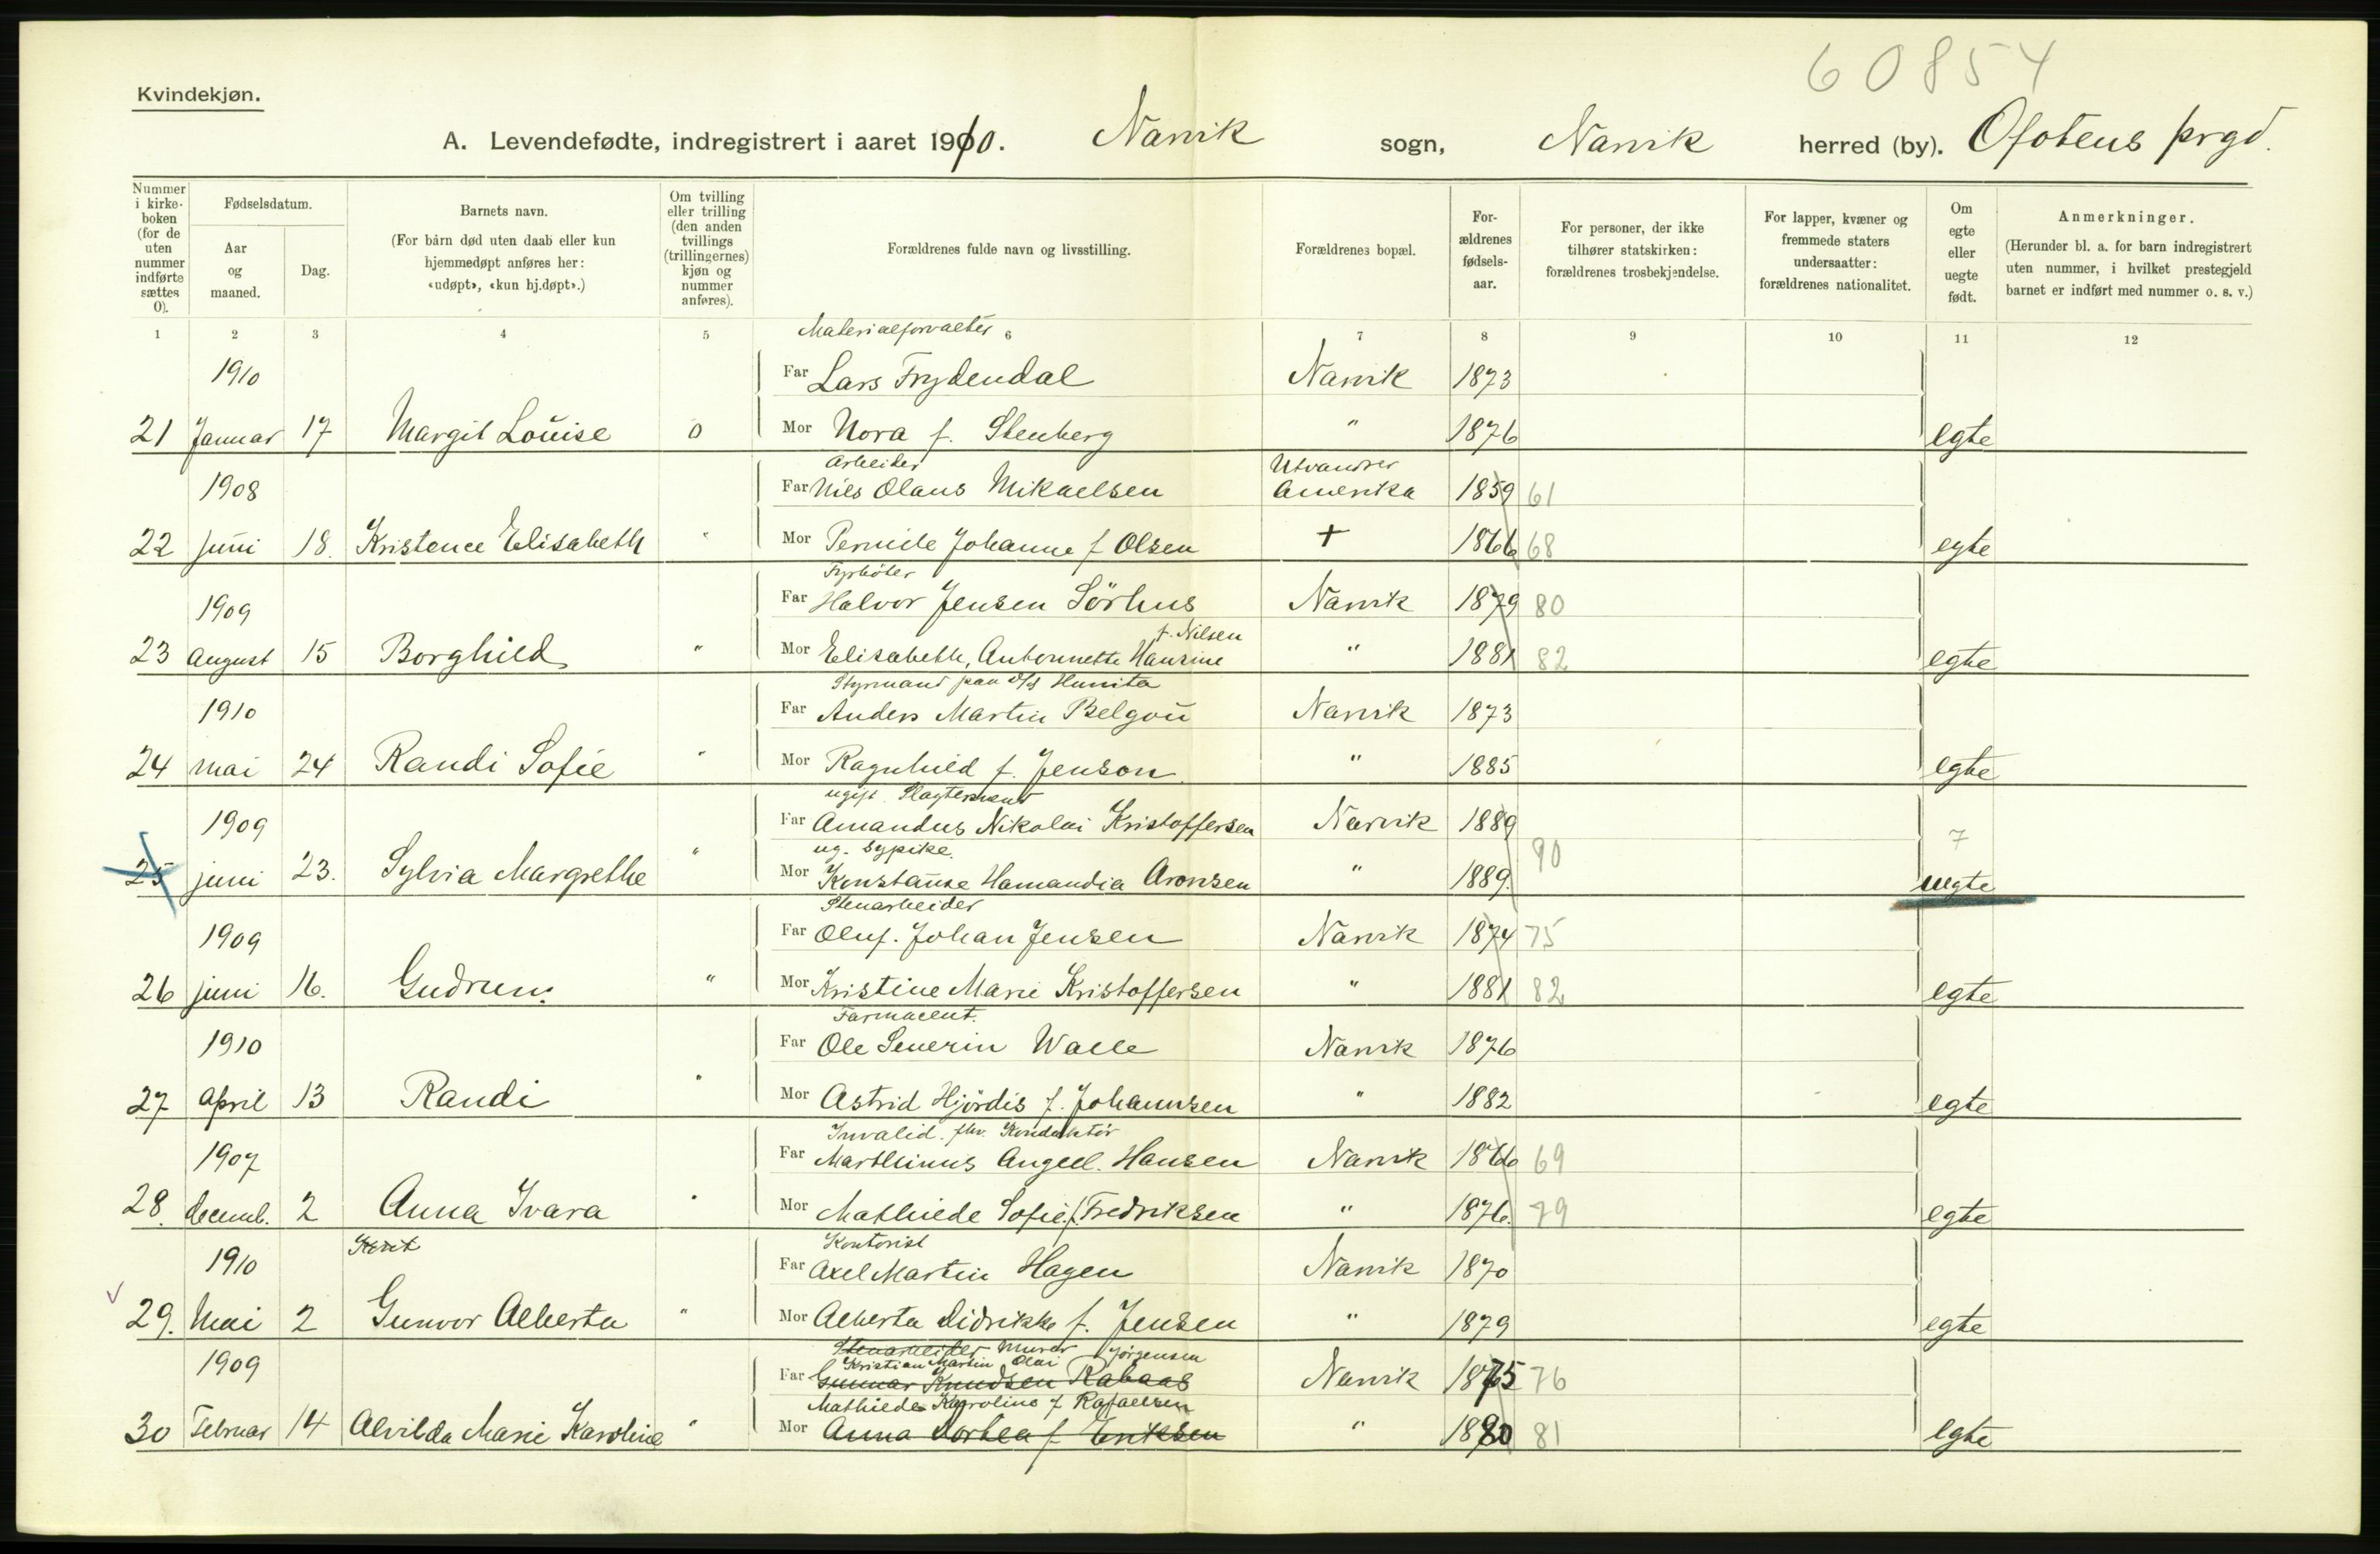 60854
Kvindekjøn.
A. Levendefødte, indregistrert i aaret 1910. Narvik sogn, Narvik herred (by). Ofotens prgd.
Nummer i kirkeboken (for de uten nummer indførte sættes 0).
Fødselsdatum.
Aar og maaned.
Dag.
Barnets navn.
(For barn død uten daab eller kun hjemmedøpt anføres her: «udøpt», «kun hj.døpt».)
Om tvilling eller trilling (den anden tvillings (trillingernes) kjøn og nummer anføres).
Forældrenes fulde navn og livsstilling.
Forældrenes bopæl.
Forældrenes fødselsaar.
For personer, der ikke tilhører statskirken: forældrenes trosbekjendelse.
For lapper, kvæner og fremmede staters undersaatter: forældrenes nationalitet.
Om egte eller uegte født.
Anmerkninger.
(Herunder bl. a. for barn indregistrert uten nummer, i hvilket prestegjeld barnet er indført med nummer o. s. v.)
1 2 3 4 5 6 7 8 9 10 11 12
Materialforvalter
1910 Far Lars Frydendal Narvik 1873
21 Januar 17 Margit Louise 0 Mor Nora f. Stenberg " 1876 egte
Arbeider Utvandrer
1908 Far Nils Olaus Mikaelsen Amerika 1859 61
22 juni 18. Kristence Elisabeth " Mor Pernile Johanne f Olsen + 1866 68 egte
Fyrbøter
1909 Far Halvor Jensen Sörhus Narvik 1879 80
f. Nilsen
23 August 15 Borghild " Mor Elisabeth, Antonnette Hansine " 1881 82 egte
Styrmand paa D/S Hunita
1910 Far Anders Martin Belgou Narvik 1873
24 mai 24 Randi Sofie " Mor Ragnhild f. Jenson " 1885 egte
ugift. Slagtersvend
1909 Far Amandus Nikolai Kristoffersen Narvik 1889
ug. sypike. 90 7
25 juni 23. Sylvia Margrethe " Mor Konstanse Hamandia Aronsen " 1889. uegte
Stenarbeider
1909 Far Oluf. Johan Jensen Narvik 1874 75
26 juni 16. Gudrun. " Mor Kristine Marie Kristoffersen " 1881 82 egte
Farmaceut.
1910 Far Ole Severin Walle Narvik 1876
27 April 13 Randi " Mor Astrid Hjördis f. Johannsen " 1882 egte
Invalid. fhv. Konduktör
1907 Far Marthinus Angell. Hansen Narvik 1866 69
28. decemb. 2 Anna Ivara " Mor Mathilde Sofie f. Fredriksen " 1876. 79 egte
Kontorist
1910 Far Axel Martin Hagen Narvik 1870
29. Mai 2 Gunvor Alberta " Mor Alberta Didrikke f. Jensen " 1879 egte
Stenarbeider Murer Jörgensen
Kristian Martin Olai
1909 Far Gunnar Knudsen Rabaas Narvik 1875 76
Mathilde Karoline f Rafaelsen
30 Februar 14 Alvilda Marie Karoline " Mor Anna Dorthea f Eriksen " 1880 81 egte